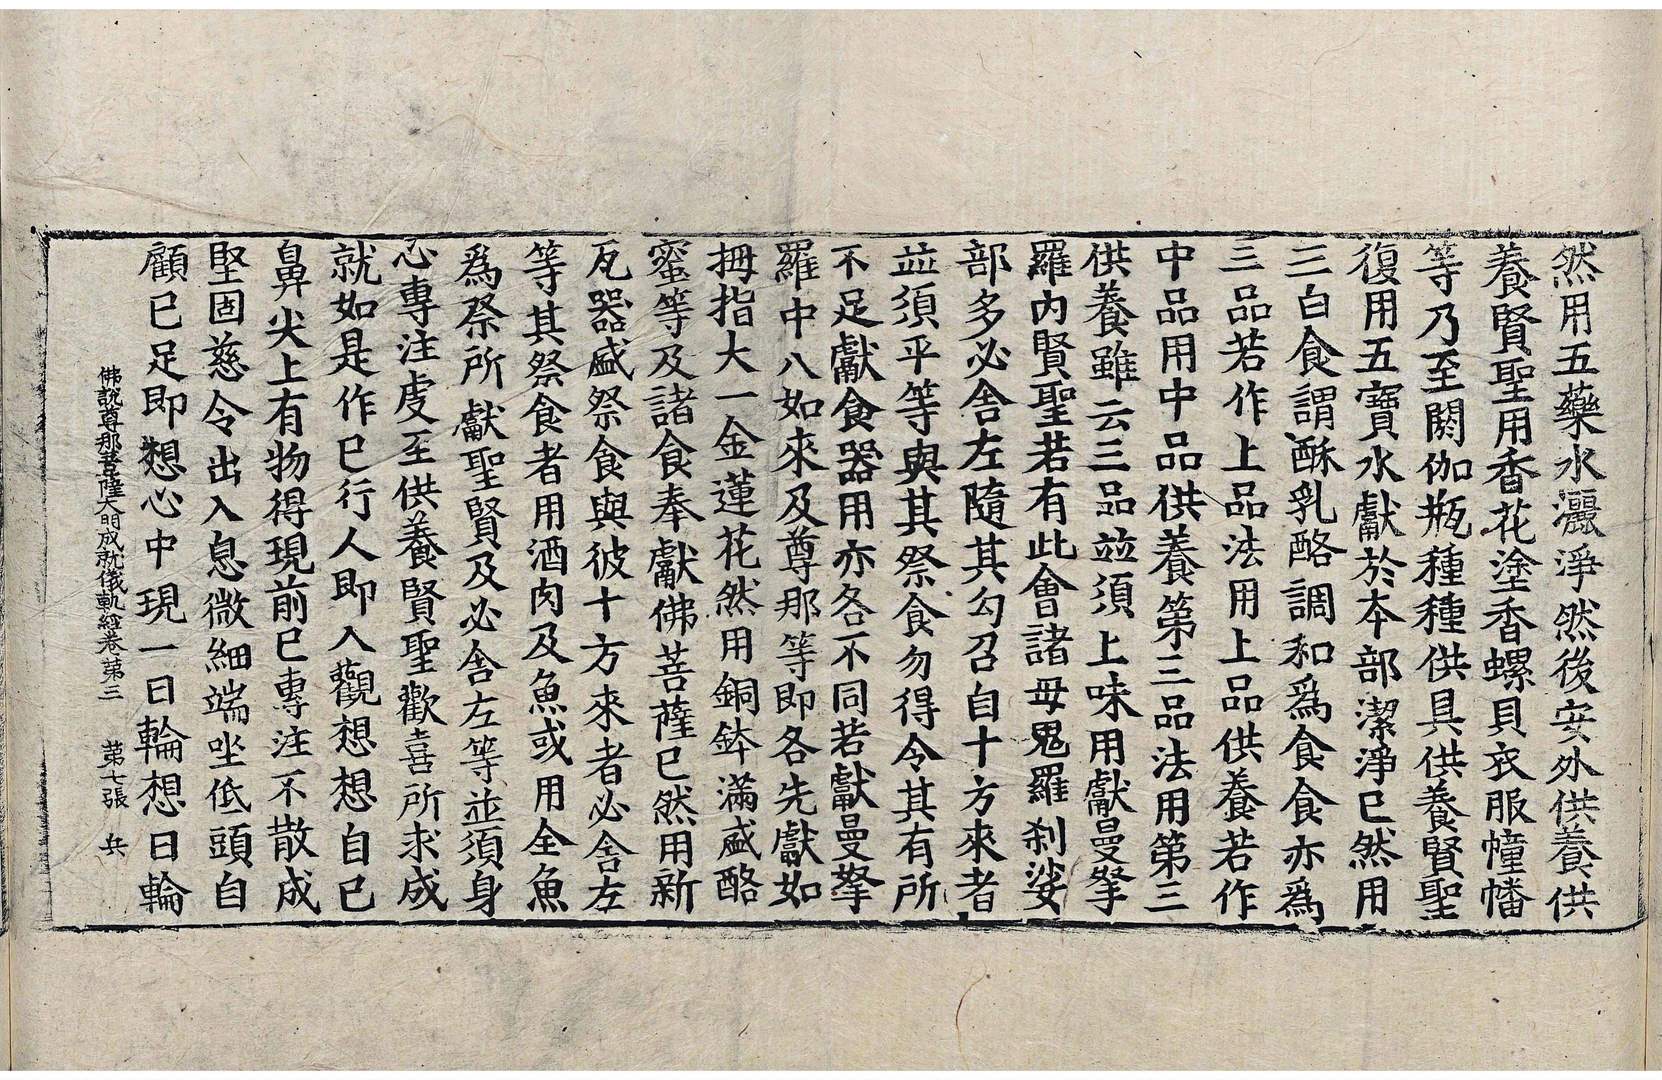 然用五藥水灑淨然後安外供養供
養賢聖用香花塗香螺貝衣服幢幡
等乃至閼伽瓶種種供具供養賢聖
復用五寶水獻於本部潔淨已然用
三白食謂酥乳酪調和爲食食亦爲
三品若作上品法用上品供養若作
中品用中品供養第三品法用第三
供養雖云三品並須上味用獻曼拏
羅内賢聖若有此會諸母鬼羅刹娑
部多必舍左隨其勾召自十方來者
並須平等與其祭食勿得令其有所
不足獻食器用亦各不同若獻曼拏
羅中八如來及尊那等即各先獻如
拇指大一金蓮花然用銅鉢滿盛酪
蜜等及諸食奉獻佛菩薩已然用新
瓦器盛祭食與彼十方來者必舍左
等其祭食者用酒肉及魚或用全魚
爲祭所獻聖賢及必舍左等並須身
心專注虔至供養賢聖歡喜所求成
就如是作已行人即入觀想想自己
鼻尖上有物得現前已專注不散成
堅固慈令出入息微細端坐低頭自
顧已足即想心中現一日輪想日輪
佛説尊那菩薩大明成就儀軌經卷第三 第七張 兵